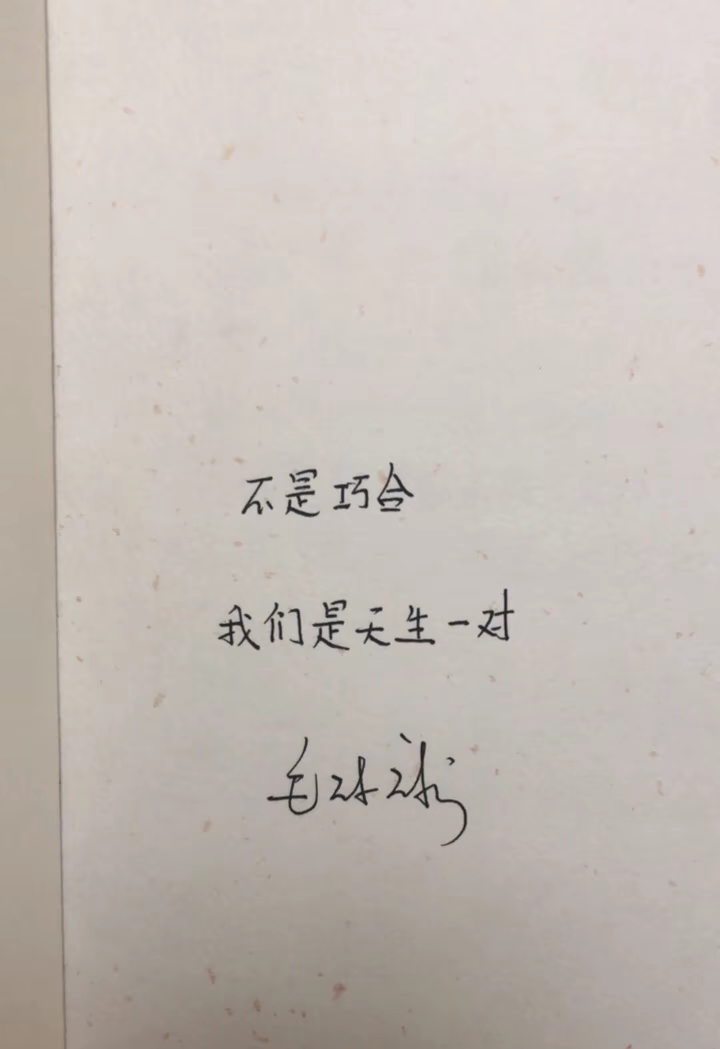 不是巧合
我们是天生一对
毛球球